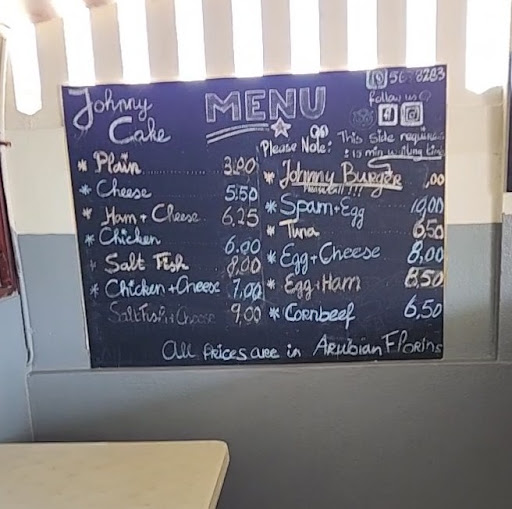 Johnny Cake
MENU
567 8283
follow us @
Please Note: This Side require
15 min waiting time
* Plain 3.00
* Cheese 5.50
* Ham + Cheese 6,25
* Chicken 6.00
* Salt Fish 8,00
* Chicken + Cheese 7,00
SaltFish + Cheese 9,00
* Johnny Burger ,00
Please call !!!
* Spam + Egg 10,00
* Tuna 6,50
* Egg + Cheese 8,00
* Egg + Ham 8.50
* Cornbeef 6,50
All Prices are in Arubian Florins